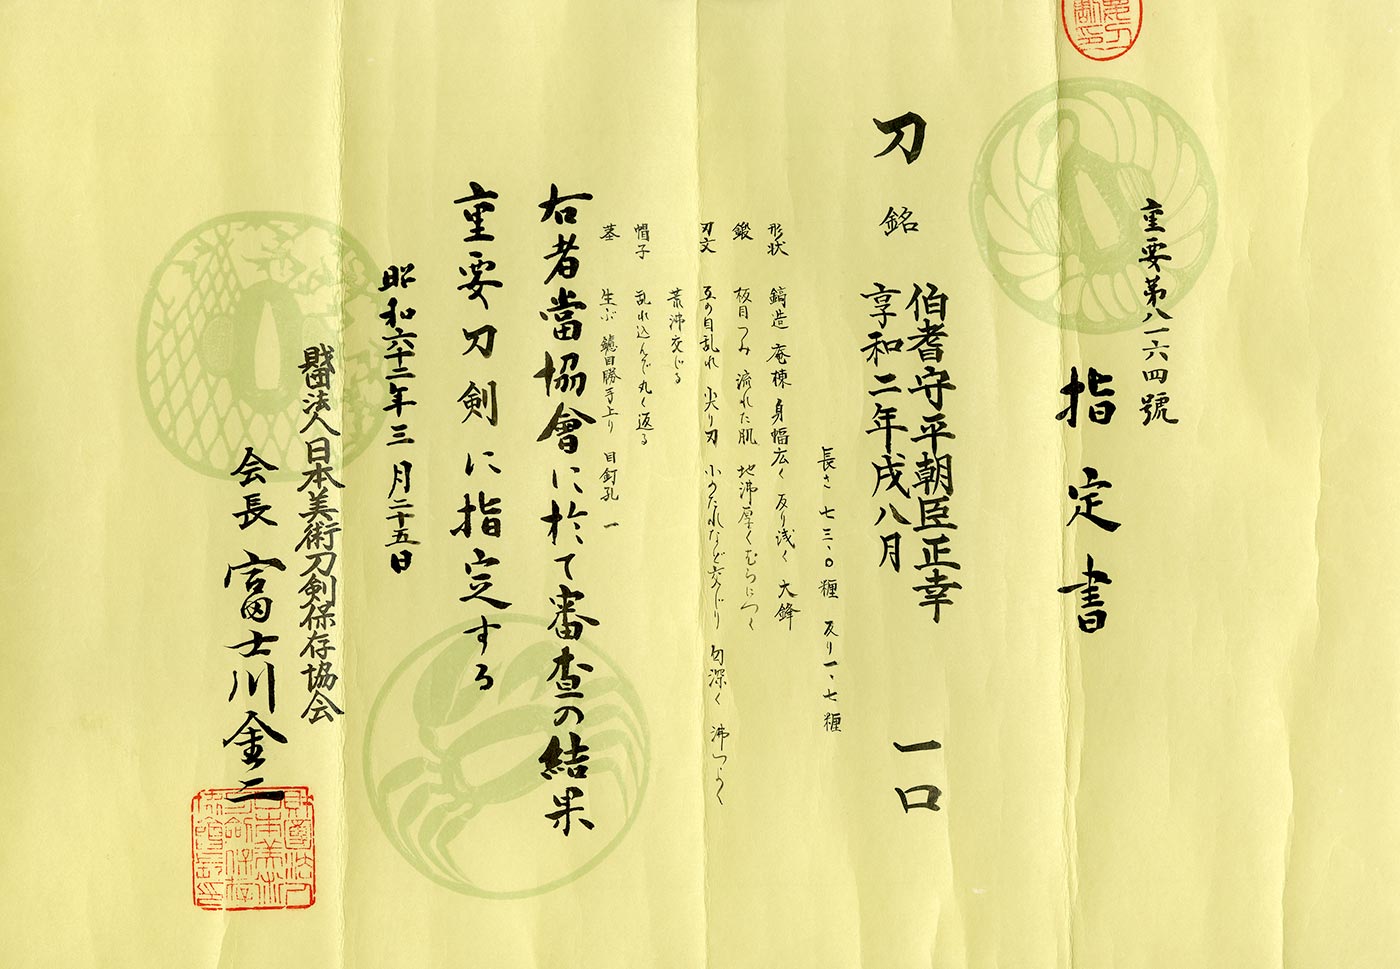 重要第八一六四號
指定書
刀 銘 伯耆守平朝臣正幸 一口
享和二年戌八月
長さ 七三、〇糎 反り一、七糎
形状 鎬造 庵棟 身幅広く 反り浅く 大鋒
鍛 板目つみ 流れた肌 地沸厚くむらにつく
刃文 互の目乱れ 尖り刃 小のたれなど交じり 匂深く 沸つよく
荒沸交じる
帽子 乱れ込んで丸く返る
茎 生ぶ 鑢目勝手上り 目釘孔一
右者當協會に於て審査の結果
重要刀剣に指定する
昭和六十二年三月二十五日
財団法人日本美術刀剣保存協会
会長 富士川金二